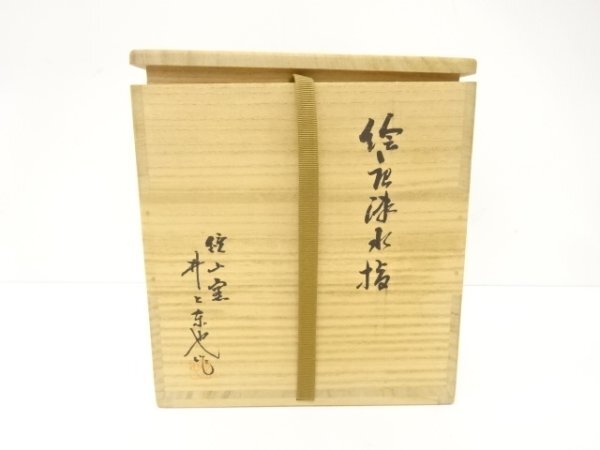 絵唐津水指
鏡山窯
井上東也作